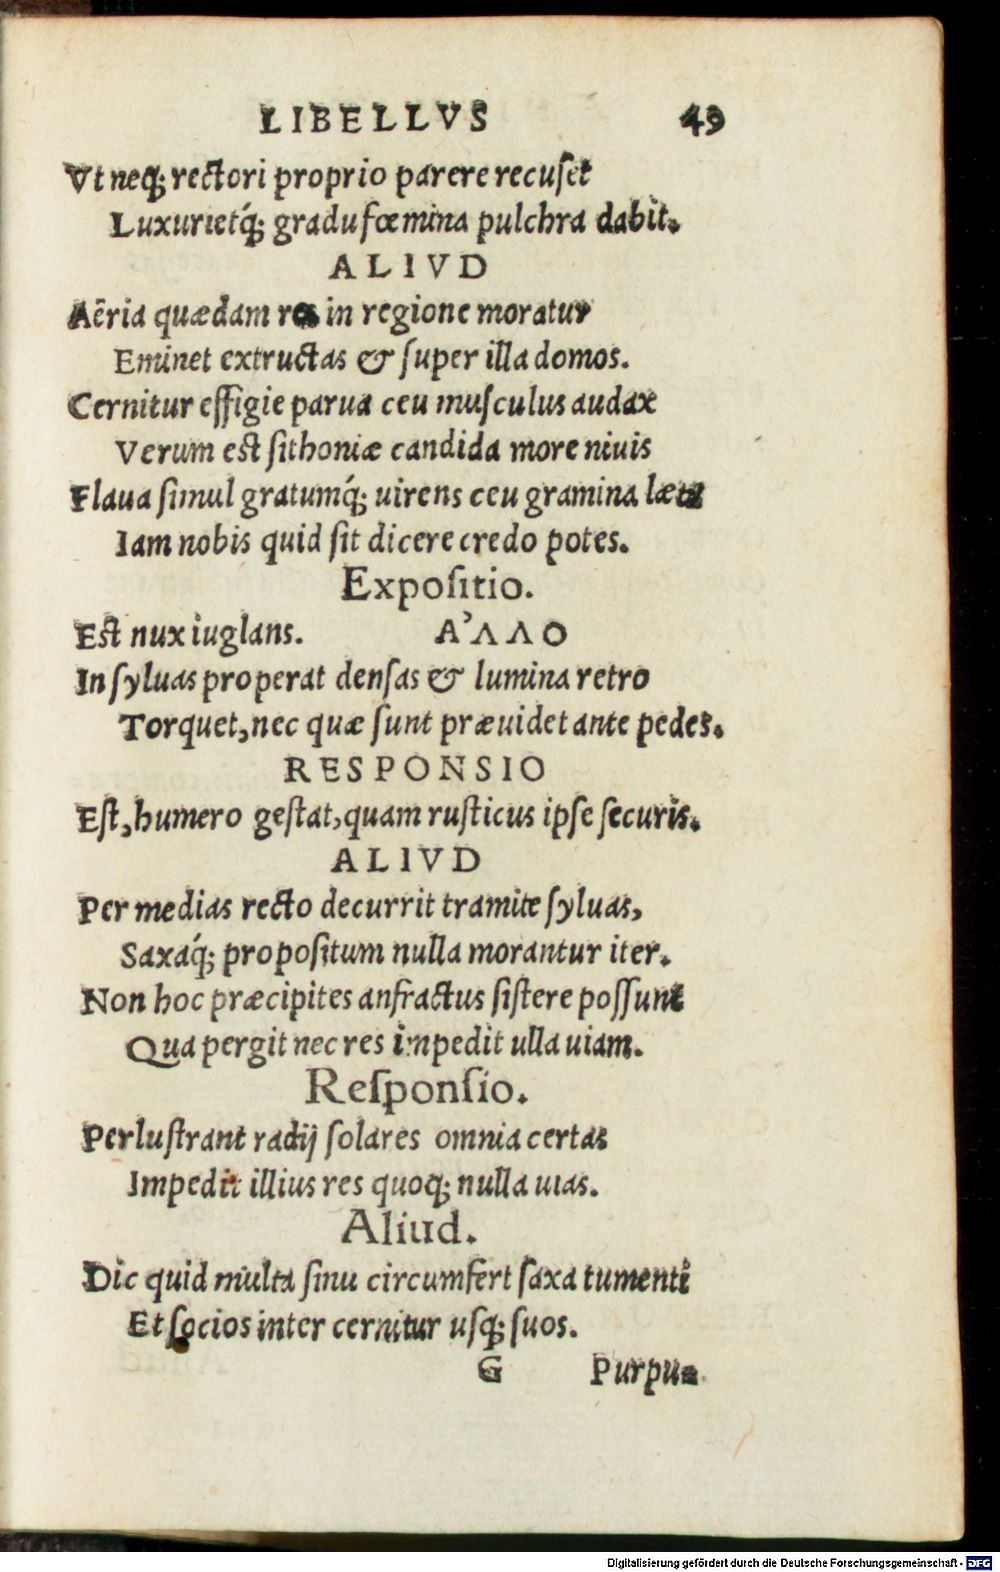 LIBELLVS 49
Vt neq; rectori proprio parere recuset
Luxurietq́; gradu fœmina pulchra dabit.
ALIVD
Aëria quædam res in regione moratur
Eminet extructas & super illa domos.
Cernitur effigie parua ceu musculus audax
Verum est sithoniæ candida more niuis
Flaua simul gratumq́; uirens ceu gramina læta
Iam nobis quid sit dicere credo potes.
Expositio.
Est nux iuglans. Α᾽ΛΛΟ
In syluas properat densas & lumina retro
Torquet, nec quæ sunt præuidet ante pedes.
RESPONSIO
Est, humero gestat, quam rusticus ipse securis.
ALIVD
Per medias recto decurrit tramite syluas,
Saxaq́; propositum nulla morantur iter.
Non hoc præcipites anfractus sistere possunt
Qua pergit nec res impedit ulla uiam.
Responsio.
Perlustrant radij solares omnia certas
Impedit illius res quoq; nulla uias.
Aliud.
Dic quid multa sinu circumfert saxa tumenti
Et socios inter cernitur usq; suos.
G Purpu-
Digitalisierung gefördert durch die Deutsche Forschungsgemeinschaft - DFG